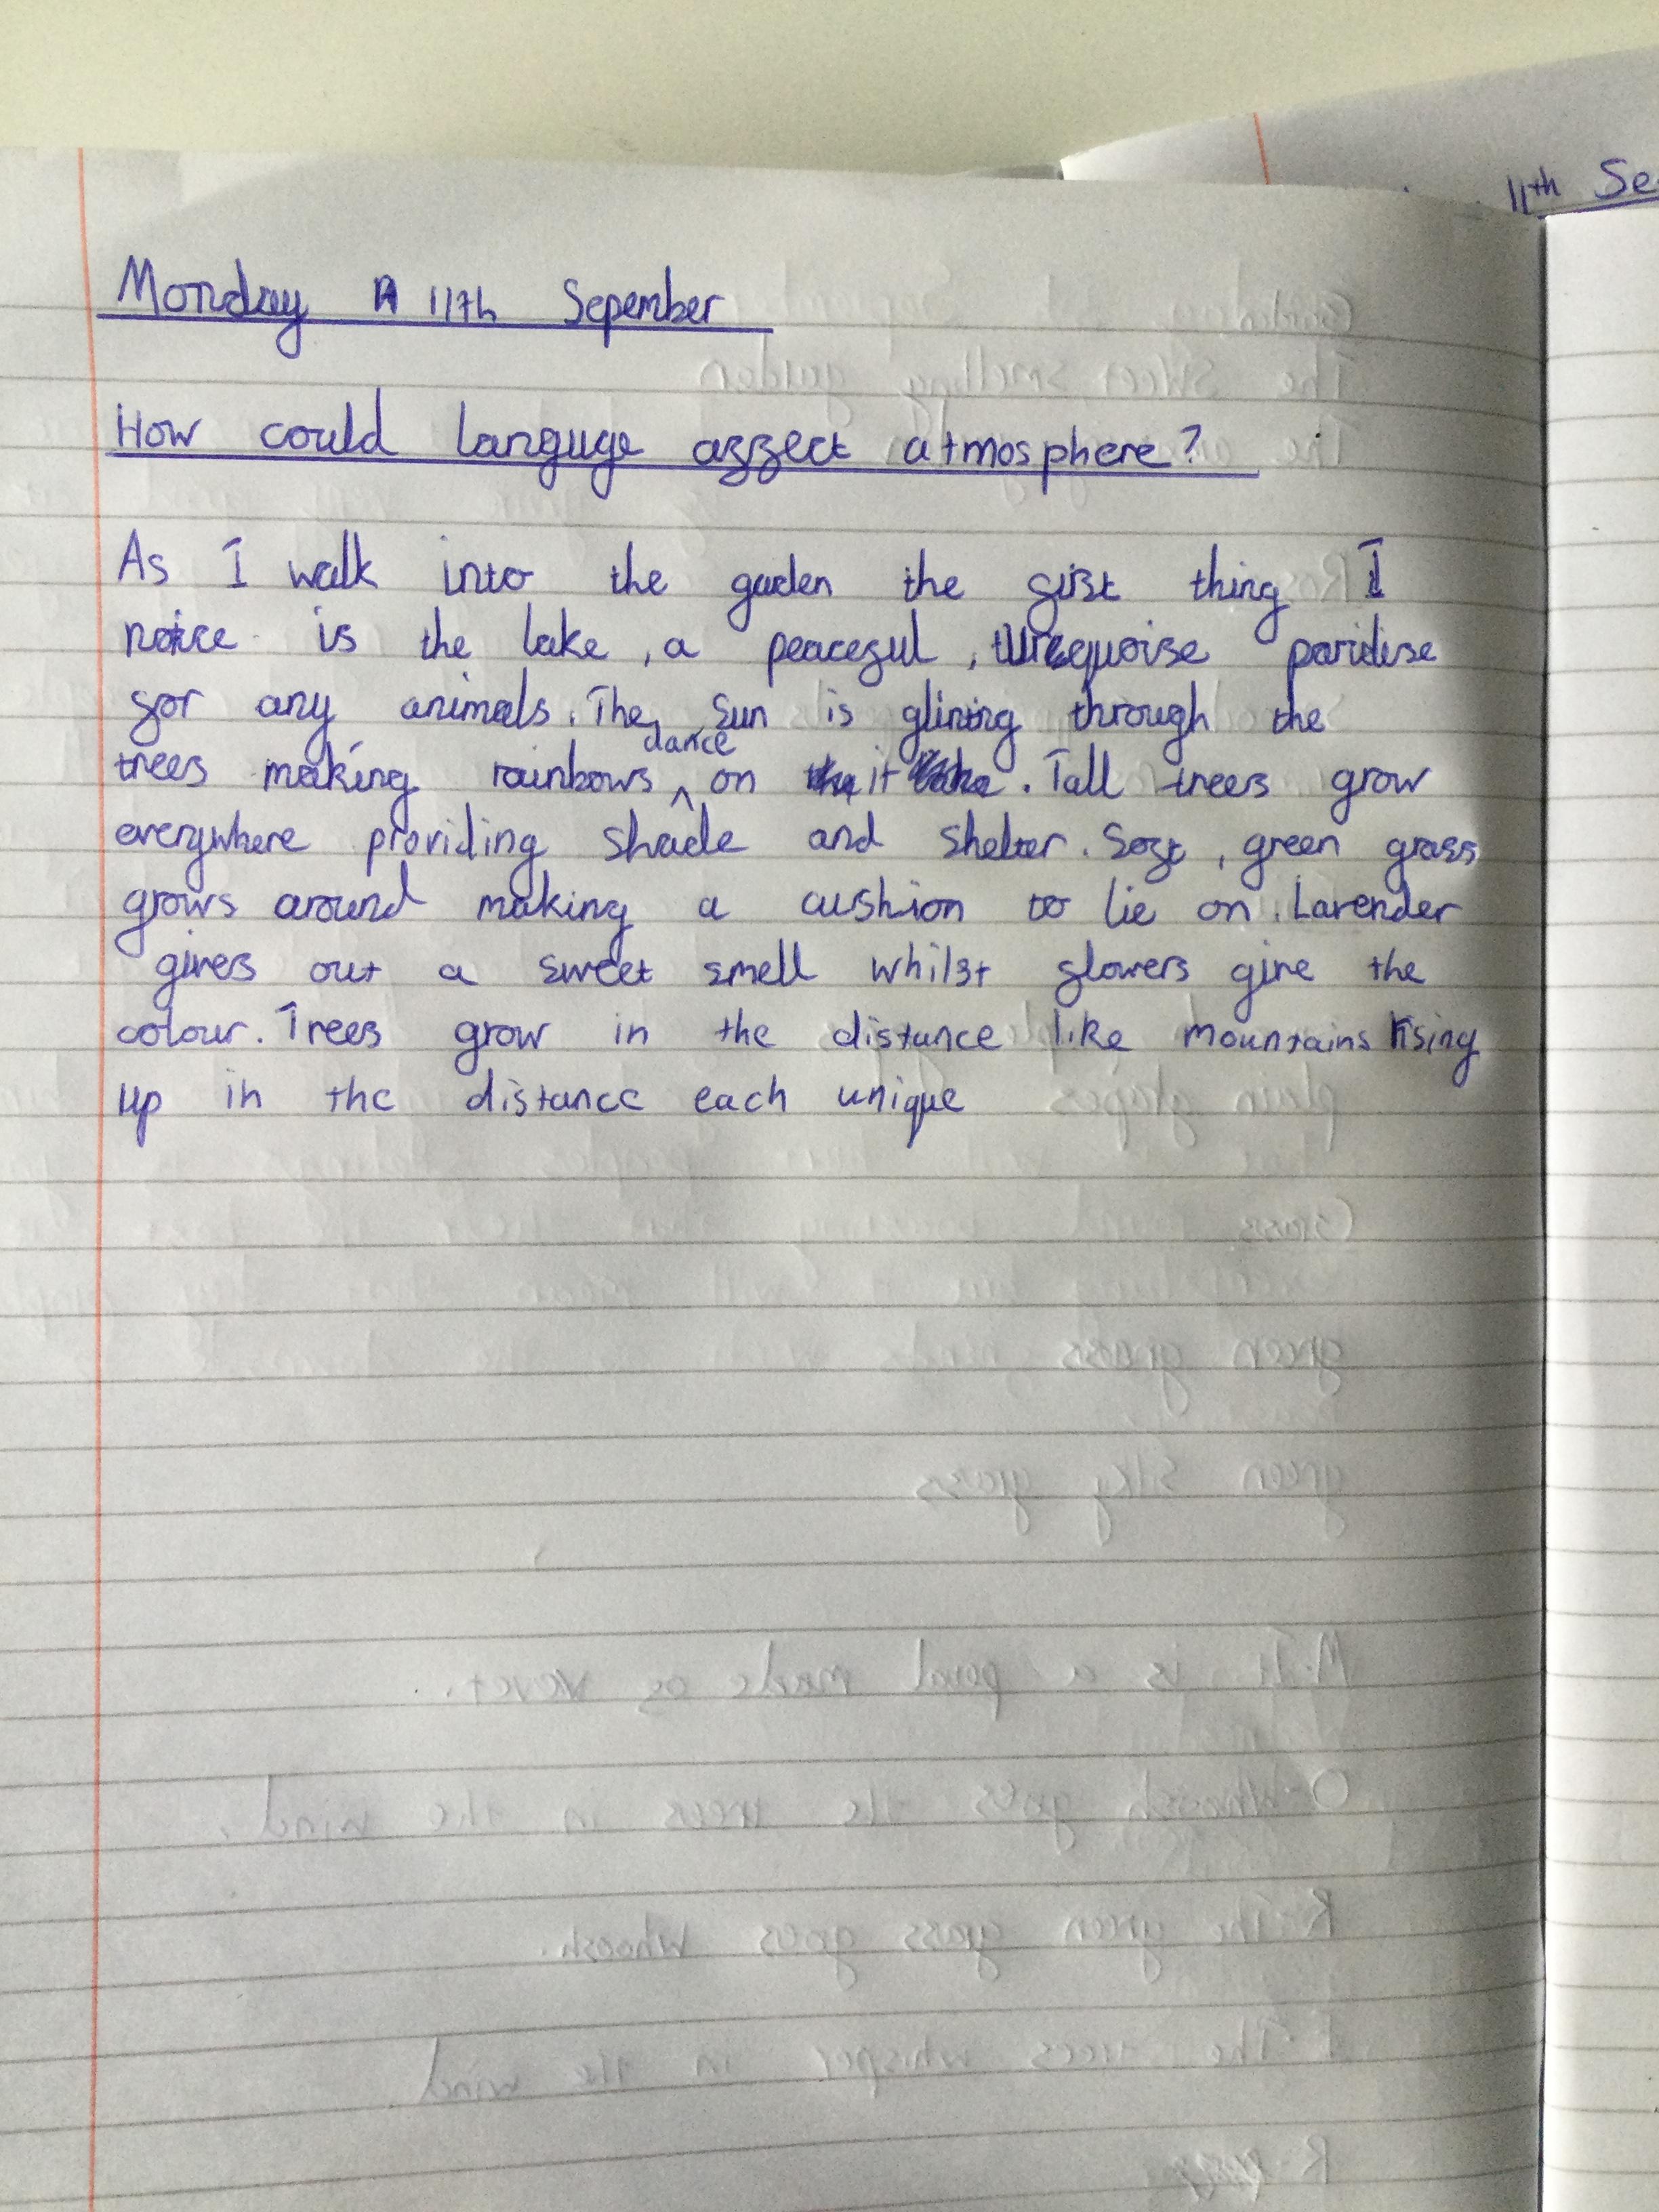 Monday 11th Sepember
11th Se
How could languge affect atmosphere?
As I walk into the garden the first thing I
notice is the lake, a peaceful, turequoise paridise
for any animals. The sun is glinting through the
trees making rainbows dance on it. Tall trees grow
everywhere providing shade and shelter. Soft, green grass
grows around making a cushion to lie on. Lavender
gives out a sweet smell whilst flowers give the
colour. Trees grow in the distance like mountains rising
up in the distance each unique